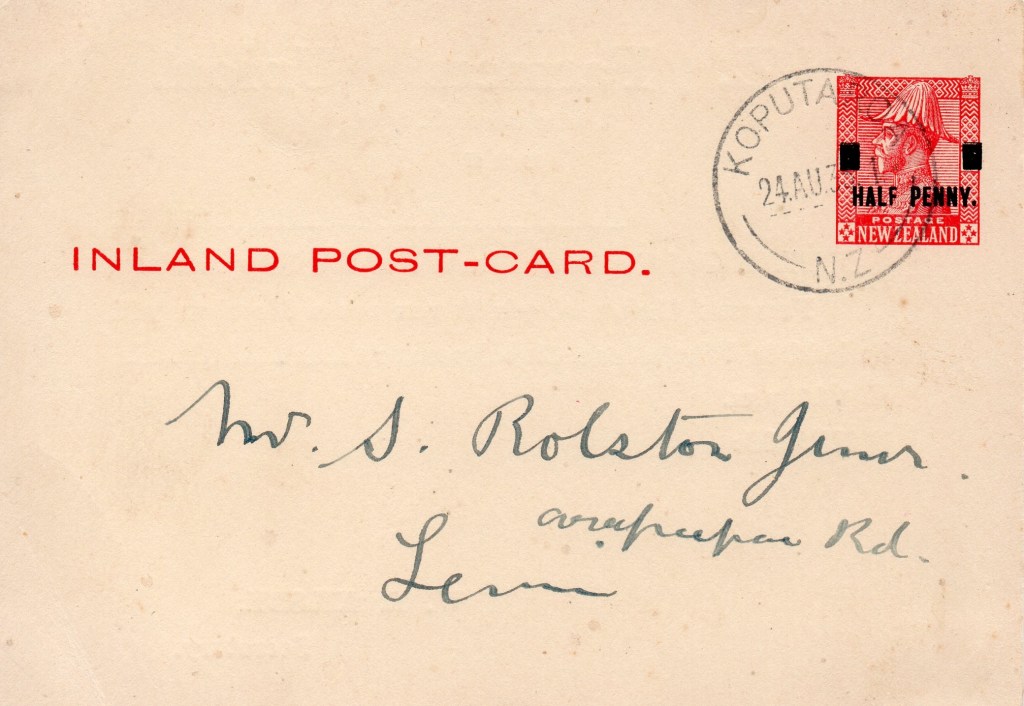 KOPUTAROA
24.AU.3
N.Z
HALF PENNY.
POSTAGE
NEW ZEALAND
INLAND POST-CARD.
Mr. S. Rolston Junr.
Arapaepae Rd.
Levin